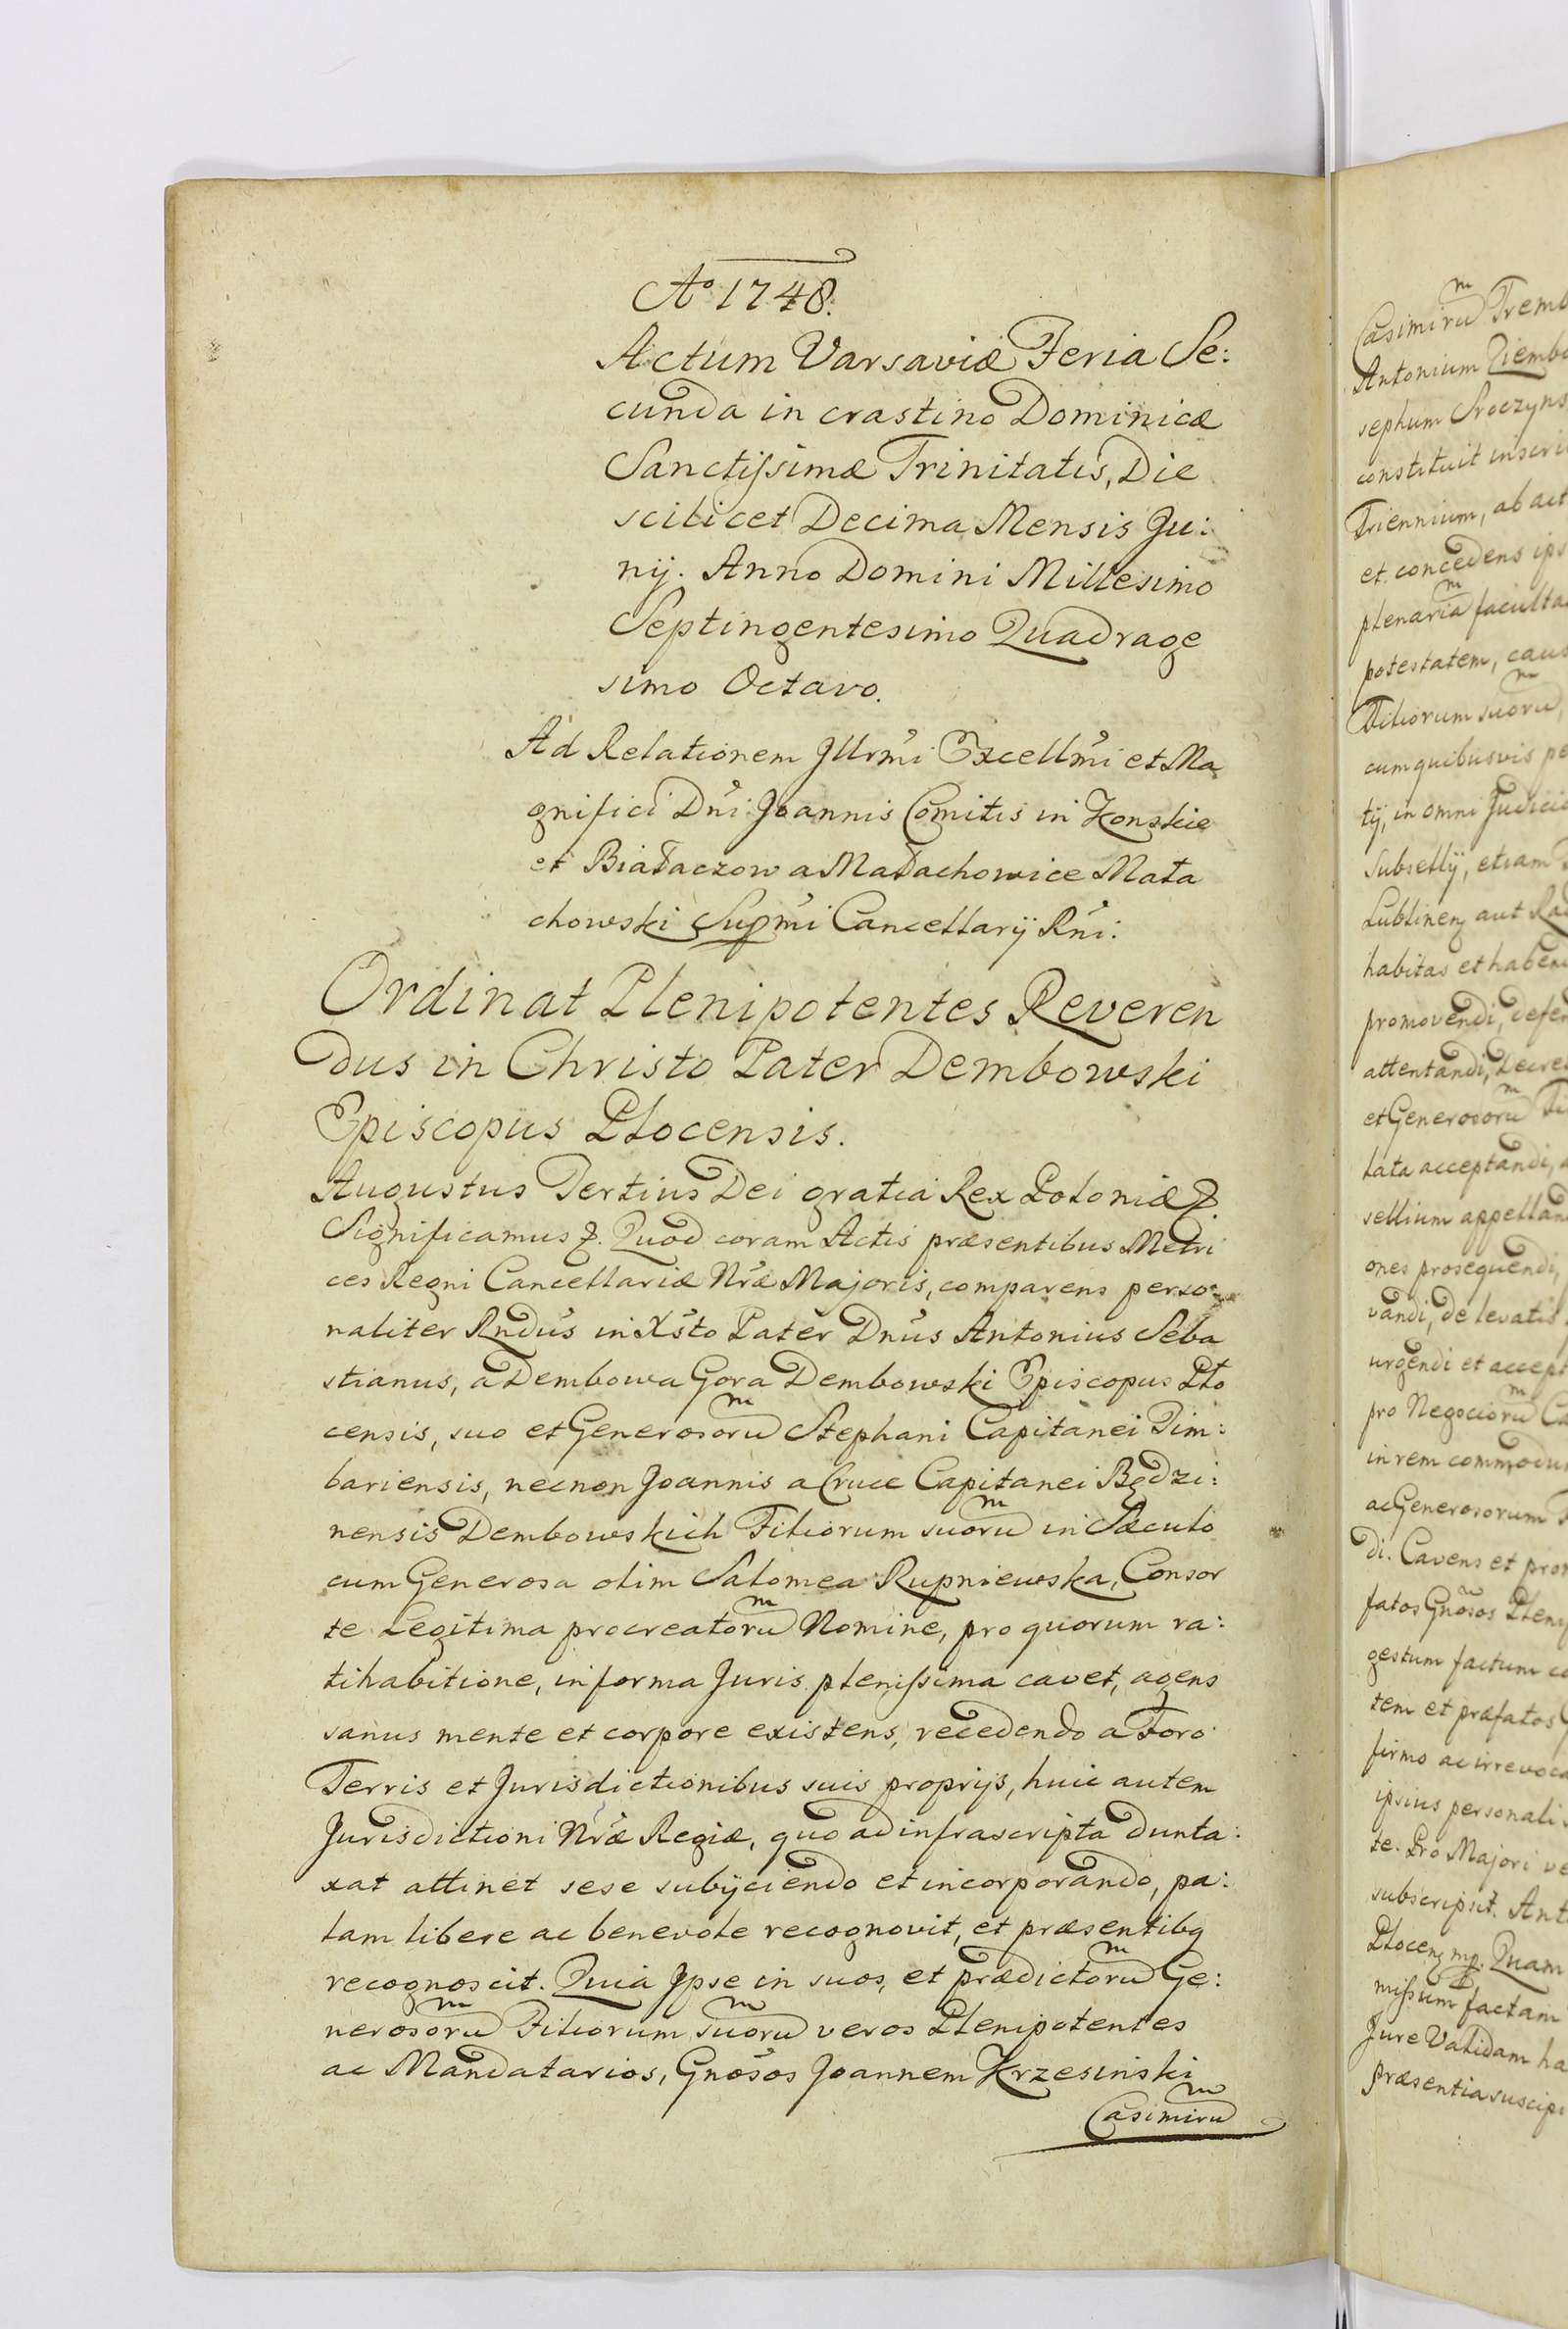 Ao 1748.
Actum Varsaviæ Feria Se:
cunda in crastino Dominicæ
Sanctissimæ Trinitatis, Die
scilicet Decima Mensis Ju:
nij. Anno Domini Millesimo
Septingentesimo Quadrage
simo Octavo.
Ad Relationem Jllrmi Excellmi et Ma
gnifici Dni: Joannis Comitis in Konskie
et Białaczow a Małachowice Mała
chowski Supmi Cancellarij Rni:
Ordinat Plenipotentes Reveren
dus in Christo Pater Dembowski
Episcopus Plocensis.
Augustus Tertius Dei gratia Rex Poloniæ &.
Significamus &. Quod coram Actis præsentibus Metri
ces Regni Cancellariæ Nræ Majoris, comparens perso:
naliter Rndus in Xsto Pater Dnus Antonius Seba
stianus, a Dembowa Gora Dembowski Episcopus Plo
censis, suo et Generosorum Stephani Capitanei Tim:
bariensis, necnon Joannis a Cruce Capitanei Będzi:
nensis Dembowskich Filiorum suorum in Sæculo
cum Generosa olim Salomea Rupniewska, Consor
te Legitima procreatorum Nomine, pro quorum ra:
tihabitione, in forma Juris plenissima cavet, agens
sanus mente et corpore existens, recedendo a Foro
Terris et Jurisdictionibus suis proprijs, huic autem
Jurisdictioni Nræ Regiæ, quo ad infrascripta dunta:
xat attinet sese subijciendo et incorporando, pa:
lam libere ac benevole recognovit, et præsentibq
recognoscit. Quia Jpse in suos, et prædictorum Ge:
nerosorum Filiorum suorum veros Plenipotentes
ac Mandatarios, Gnosos Joannem Krzesinski
Casimirum
Casimirum
Antonium
constituit
Triennium, ab
et concedens
plenariam
potestatem,
Filiorum suorum,
cum quibusvis
tij, in omni
Subsellij, etiam
Lublinen aut
habitas et
promovendi,
attentandi,
et Generosorum
lata acceptandi,
sellium
ones prosequendi,
vandi, de levatis
urgendi et
pro Negociorum
in rem
ac Generosorum
di. Cavens et
fatos Gnosos
gestum factum
tem et præfatos
firmo ac
ipsius
te. Pro Majori
subscripsit.
Plocen mp. Quam
missum factam
Jure Validam
præsentia